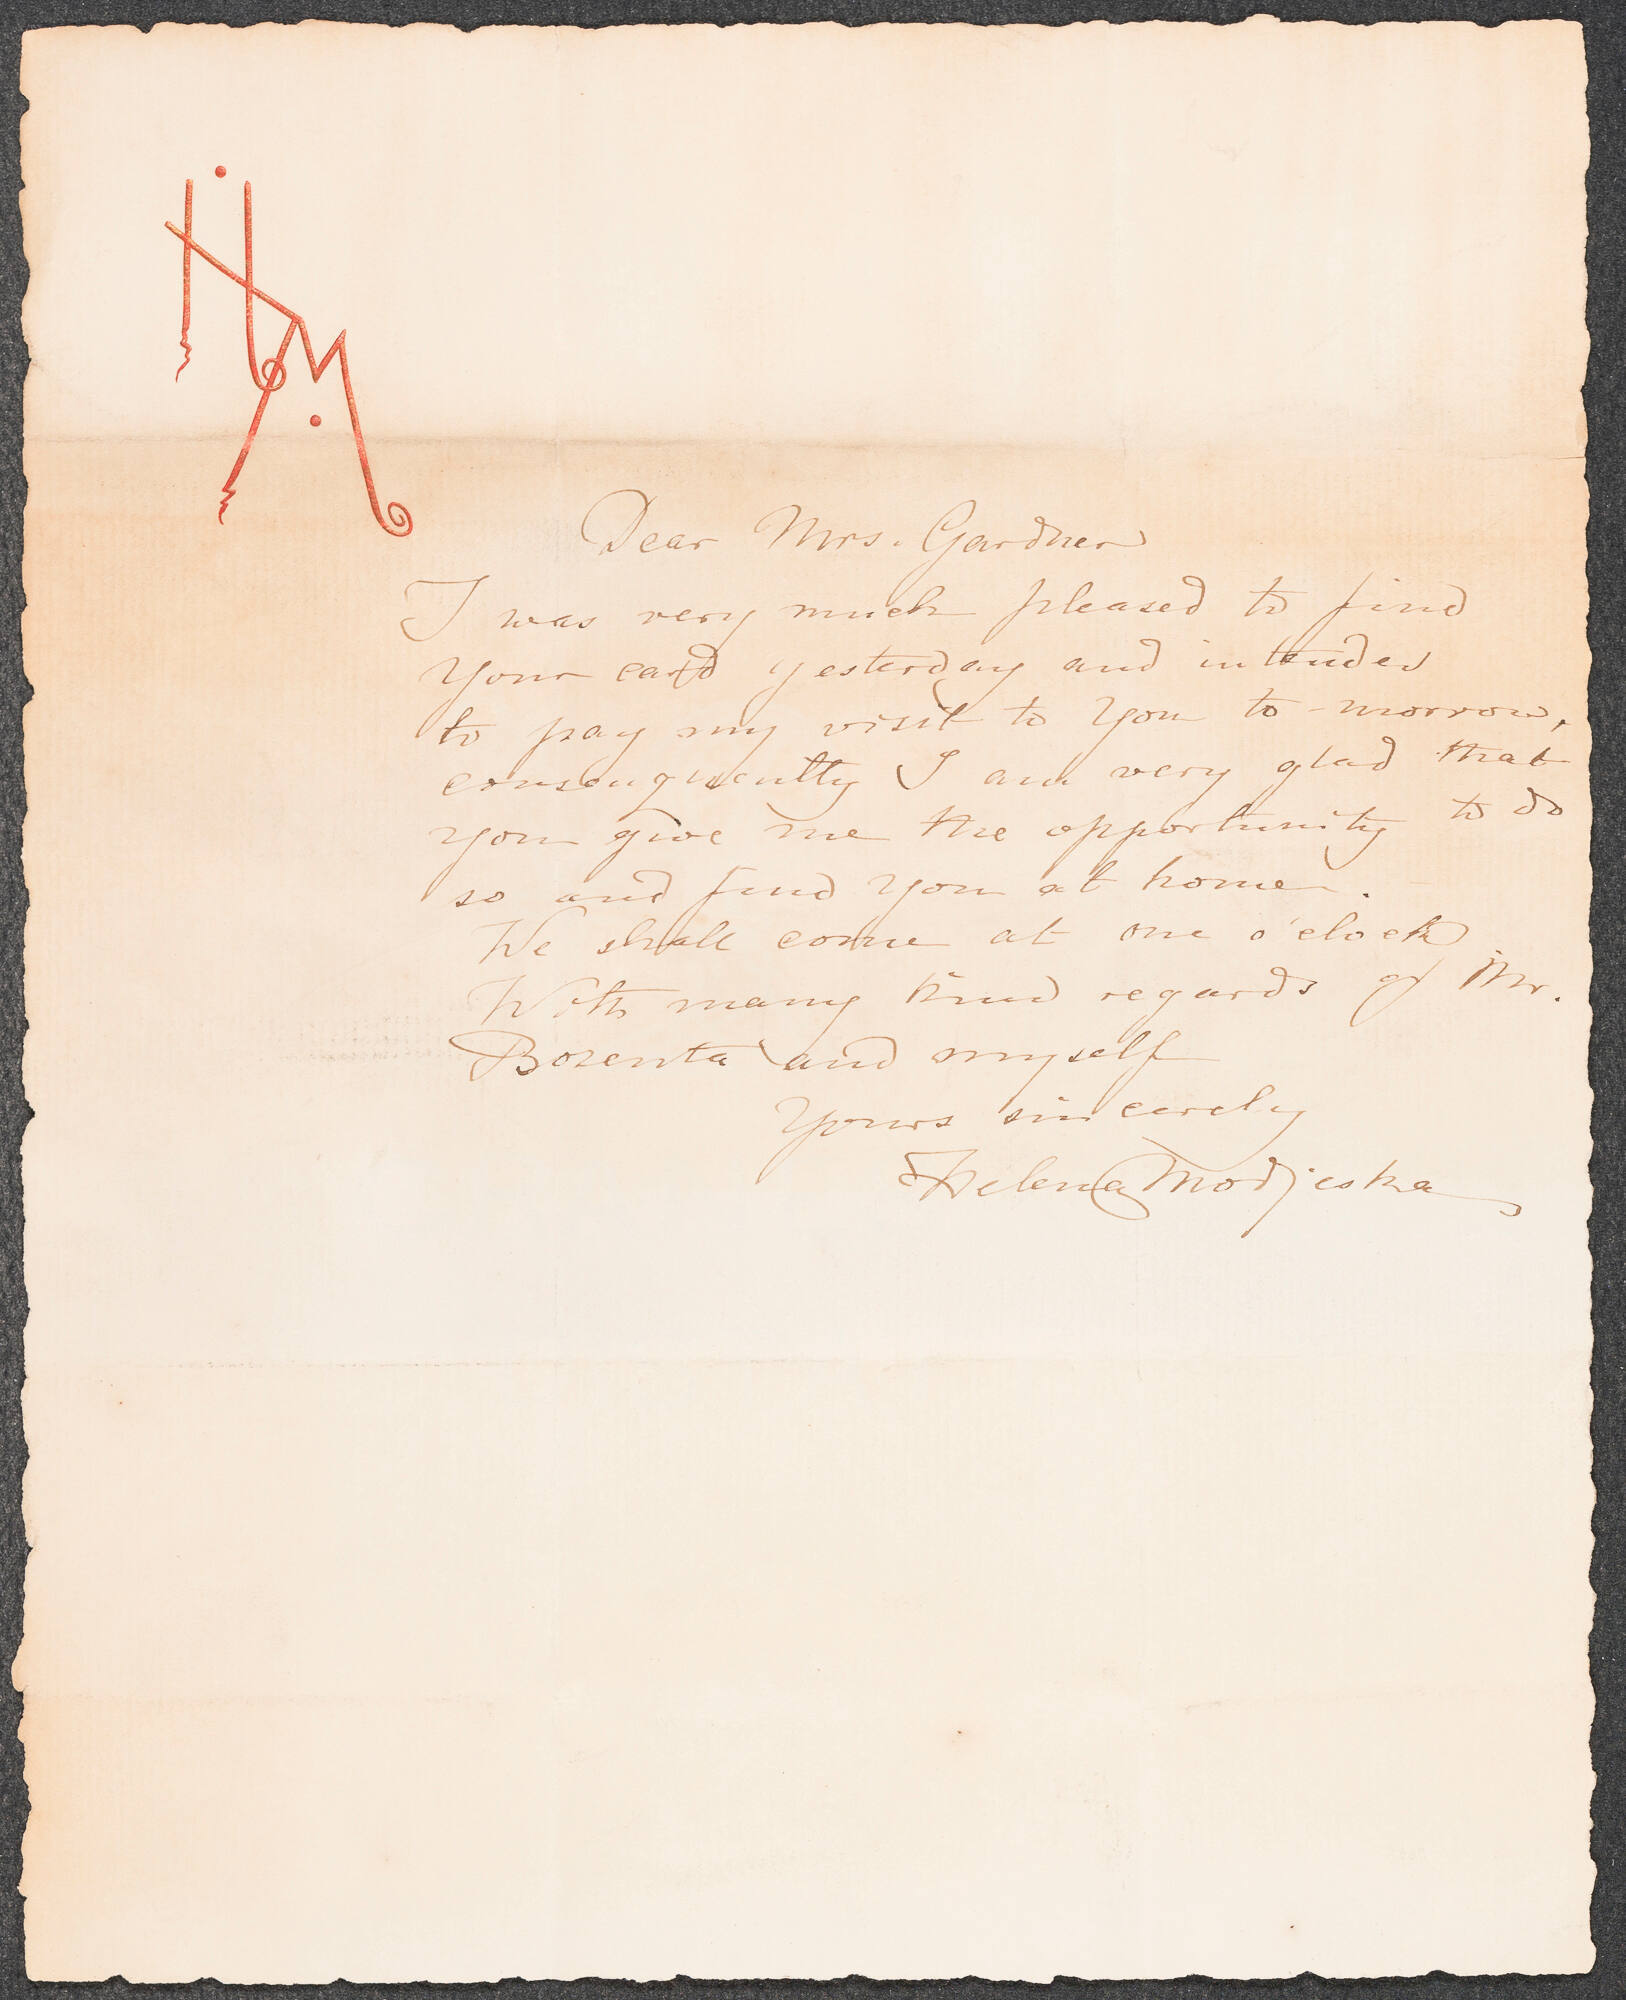 HM
Dear Mrs. Gardner
I was very much pleased to find
your card yesterday and intended
to pay my visit to You to-morrow,
consequently I am very glad that
you give me the opportunity to do
so and find You at home.
We shall come at one o'clock
With many kind regards of Mr.
Bozenta and myself
Yours sincerely
Helena Modjeska